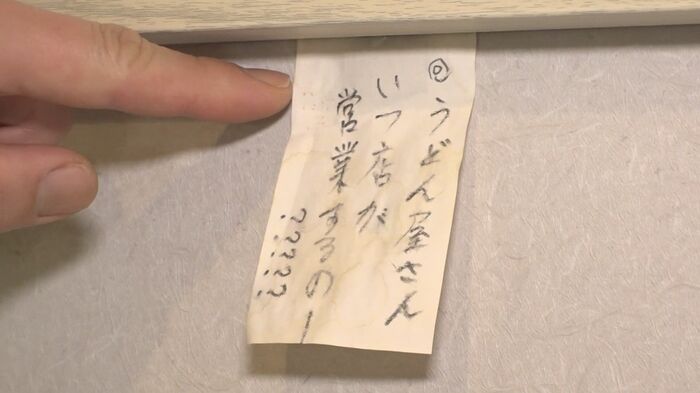 ◎うどん屋さん
いつ店が
営業するのー
？？？？？